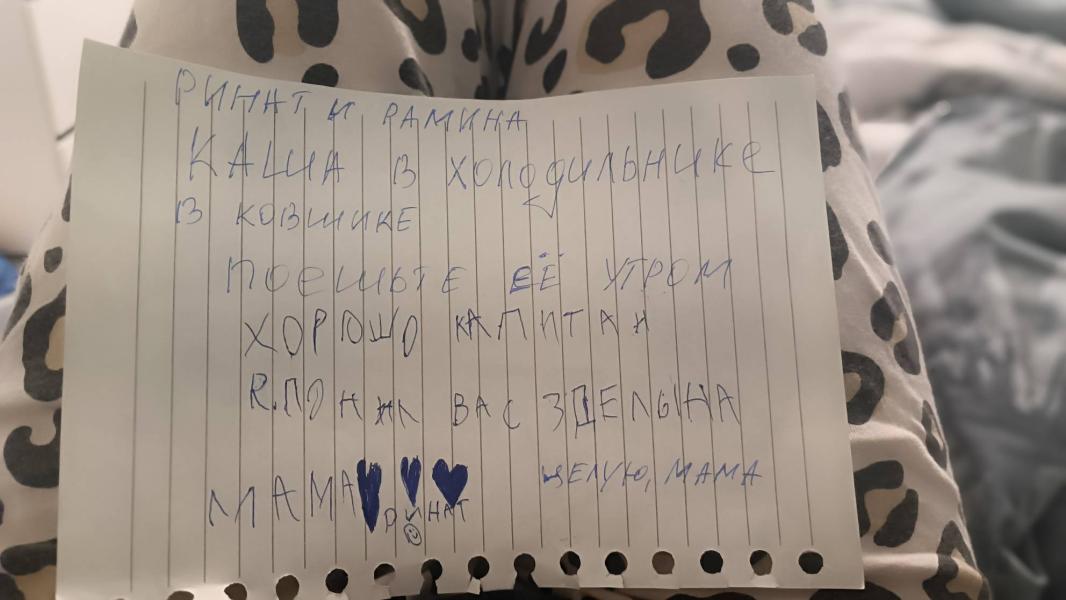 РИНАТ И РАМИНА
КАША В ХОЛОДИЛЬНИКЕ
В КОВШИКЕ
ПОЕШЬТЕ ЕЁ УТРОМ
ХОРОШО КАПИТАН
Я.ПОНЯЛ ВАС ЗДЕЛЫНА
МАМА
РИНАТ
ЦЕЛУЮ, МАМА